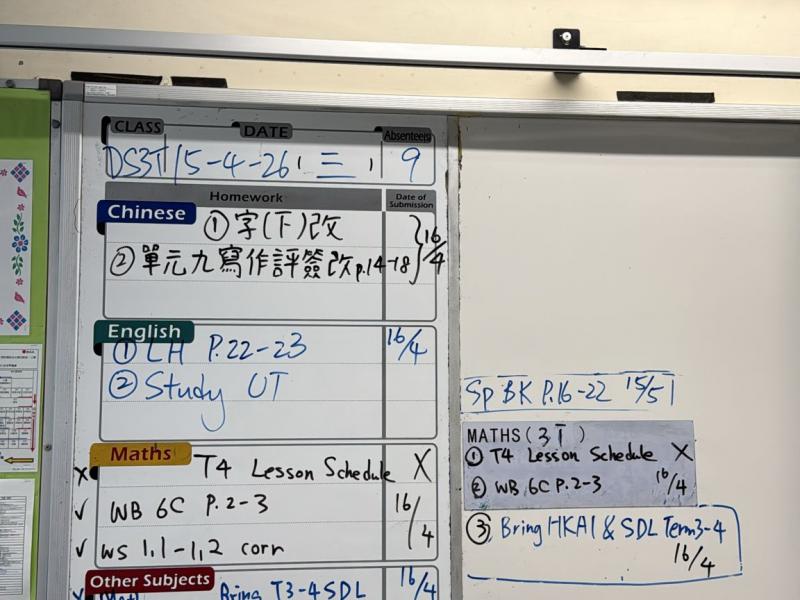 CLASS DATE Absentee(s)
DS3T 15-4-26 ( 三 ) 9
Homework Date of Submission
Chinese
① 字(下)改
② 單元九寫作評簽改 p.14-18 } 16/4
English
① LH P.22-23 16/4
② Study UT
Maths
X T4 Lesson Schedule X
✓ WB 6C P.2-3 16/4
✓ WS 1.1-1.2 corr
Other Subjects
Bring T3-4 SDL 16/4
Sp BK P.16-22 15/5
MATHS (3T)
① T4 Lesson Schedule X
② WB 6C P.2-3 16/4
③ Bring HKAI & SDL Term3-4
16/4